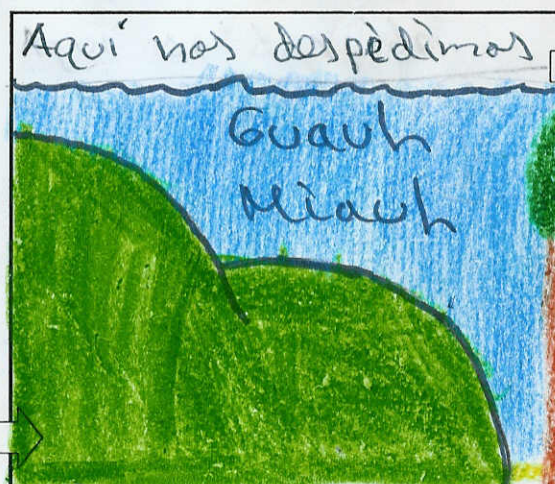 Aquí nos despèdìmos
Guauh
Miauh